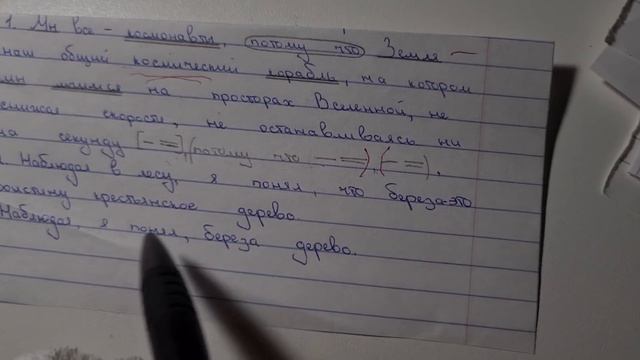 1. Мы все – космонавты, потому что Земля –
наш общий космический корабль, на котором
мы мчимся на просторах Вселенной, не
снижая скорости, не останавливаясь ни
на секунду [– =], (потому что — =), (– =).
Наблюдая в лесу, я понял, что береза-это
поистину крестьянское дерево.
Наблюдая, я понял, береза дерево.